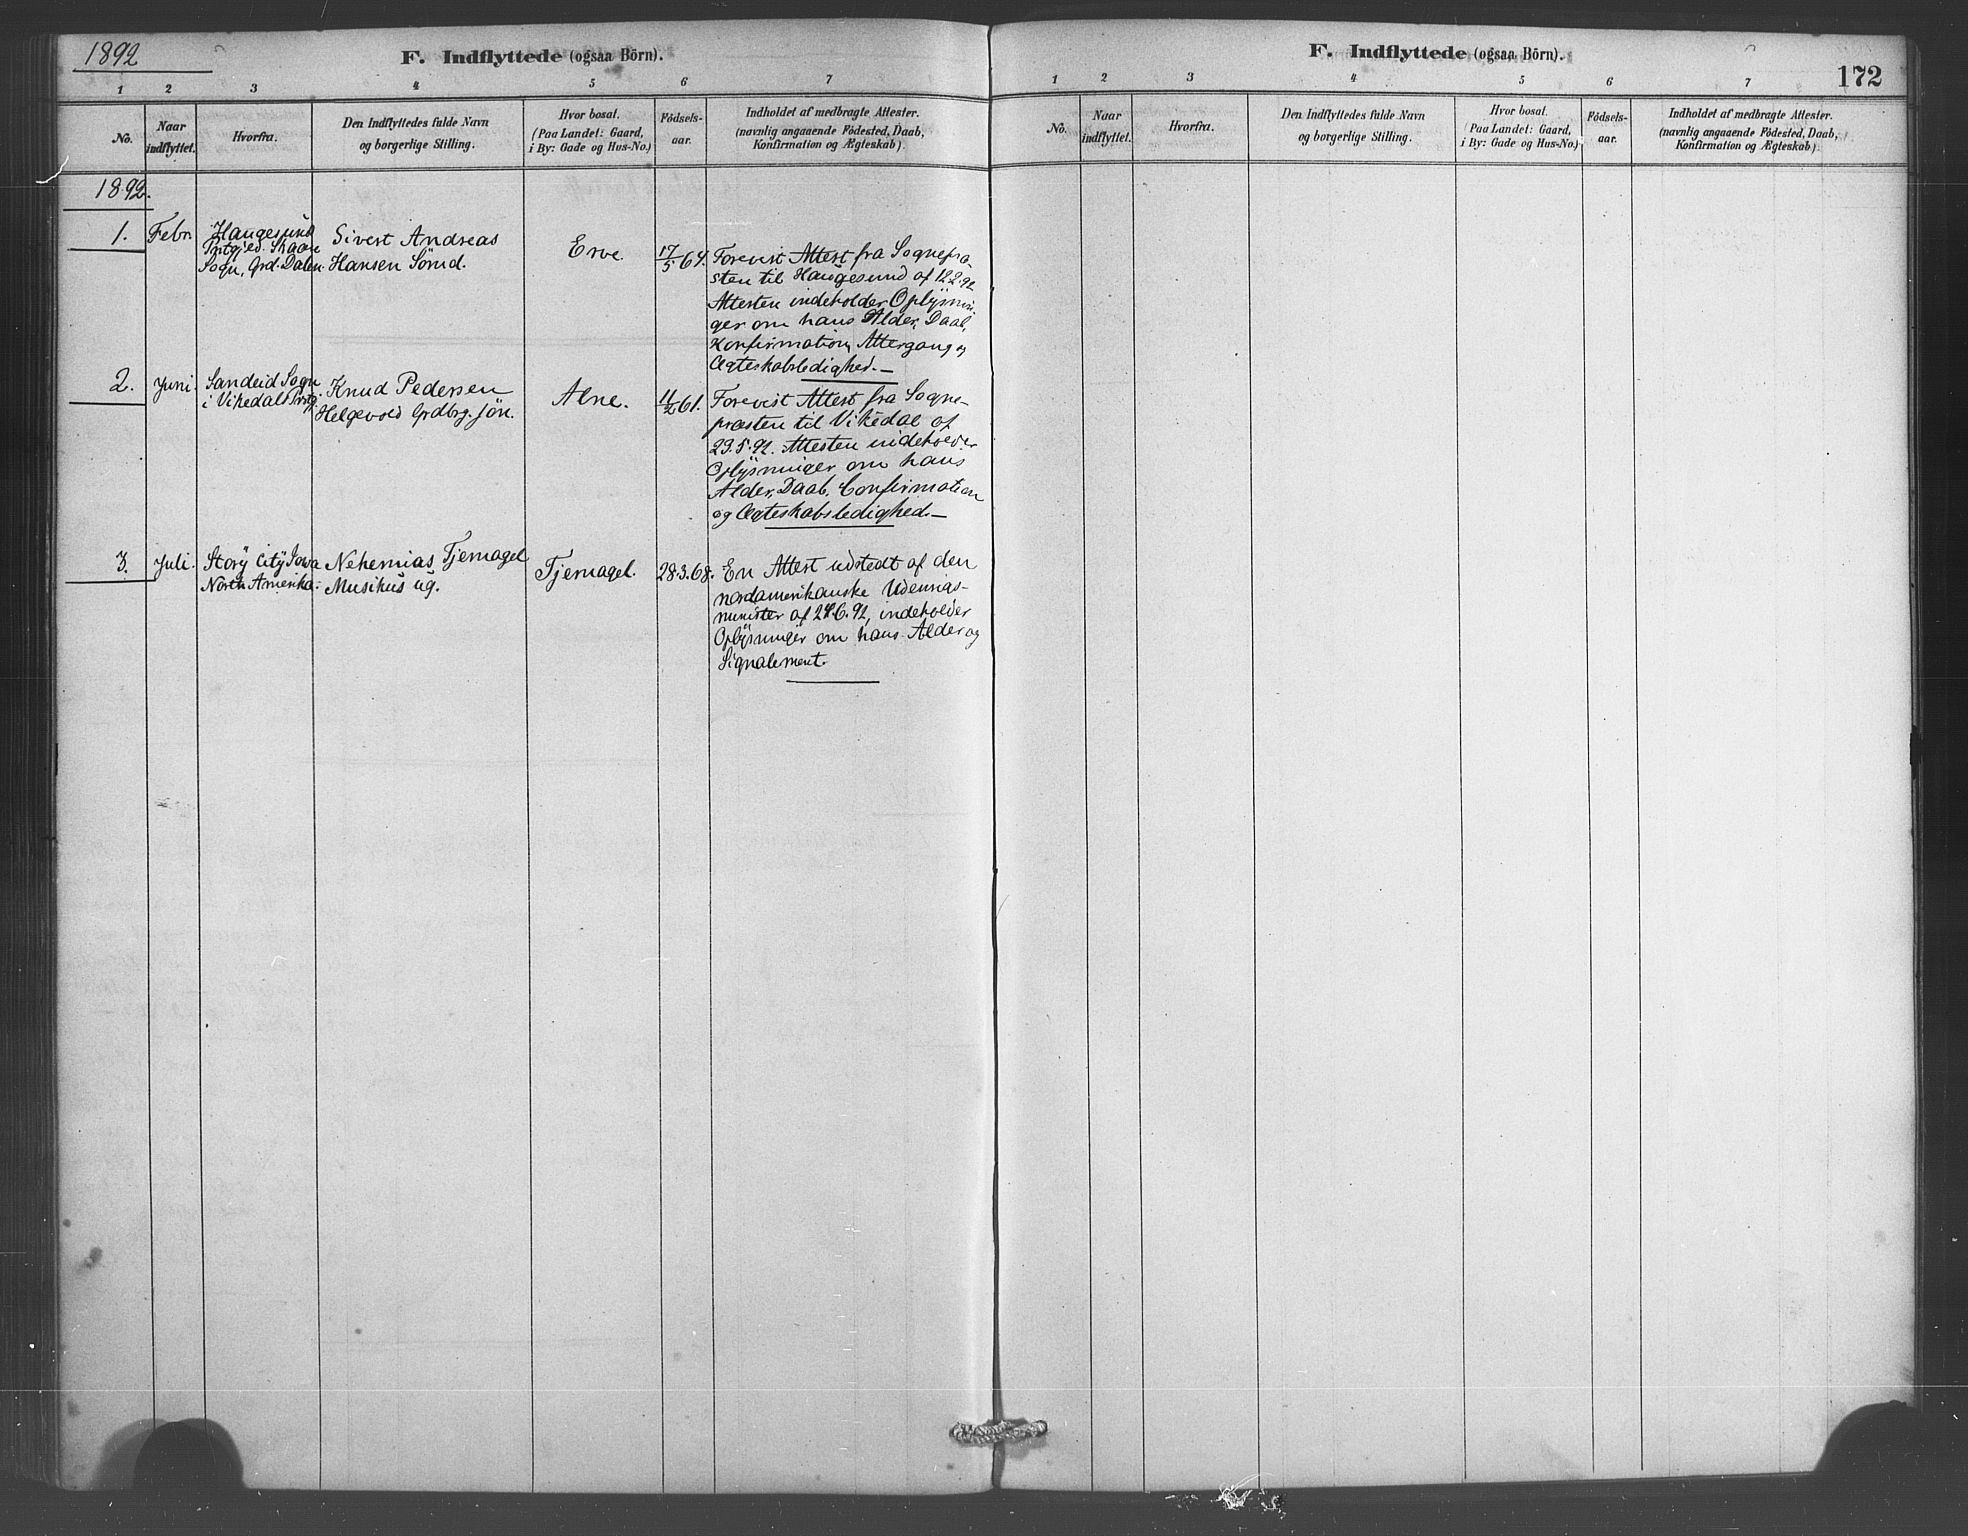 1892
F. Indflyttede (ogsaa Börn).
1 2 3 4 5 6 7
No.
Naar indflyttet.
Hvorfra.
Den Indflyttedes fulde Navn
og borgerlige Stilling.
Hvor bosat.
(Paa Landet: Gaard,
i By: Gade og Hus-No.)
Födsels-
aar.
Indholdet af medbragte Attester.
(navnlig angaaende Födested, Daab,
Konfirmation og Ægteskab).
1892.
1.
Febr.
Haugesund
Prstgjed. Skaare
Sogn, Grd. Dalen.
Sivert Andreas
Hansen Sörud.
Erve.
17/5 64.
Forevist Attest fra Sognepræ-
sten til Haugesund af 12.2.92
Attesten indeholder Oplysnin-
ger om hans Alder, Daab,
Konfirmation, Altergang og
Ægteskabsledighed.—
2.
Juni.
Sandeid Sogn
i Vikedals Prstg.
Knud Pedersen
Helgevold Grdbrg. sön.
Alne.
11/2 61.
Forevist Attest fra Sogne-
præsten til Vikedal af
29.5.92. Attesten indeholder
Oplysninger om hans
Alder, Daab, Confirmation
og Ægteskabsledighed.—
3.
Juli.
Story City Iowa
North Amerika.
Nehemias Tjernagel
Musikus ug.
Tjernagel.
28.3.68.
En Attest udstedt af den
nordamerikanske Udenrigs-
minister af 24.6.92, indeholder
Oplysninger om hans Alder og
Signalement.
F. Indflyttede (ogsaa Börn).
172
1 2 3 4 5 6 7
No.
Naar
indflyttet.
Hvorfra.
Den Indflyttedes fulde Navn
og borgerlige Stilling.
Hvor bosat.
(Paa Landet: Gaard,
i By: Gade og Hus-No.)
Födsels-
aar.
Indholdet af medbragte Attester.
(navnlig angaaende Födested, Daab,
Konfirmation og Ægteskab).